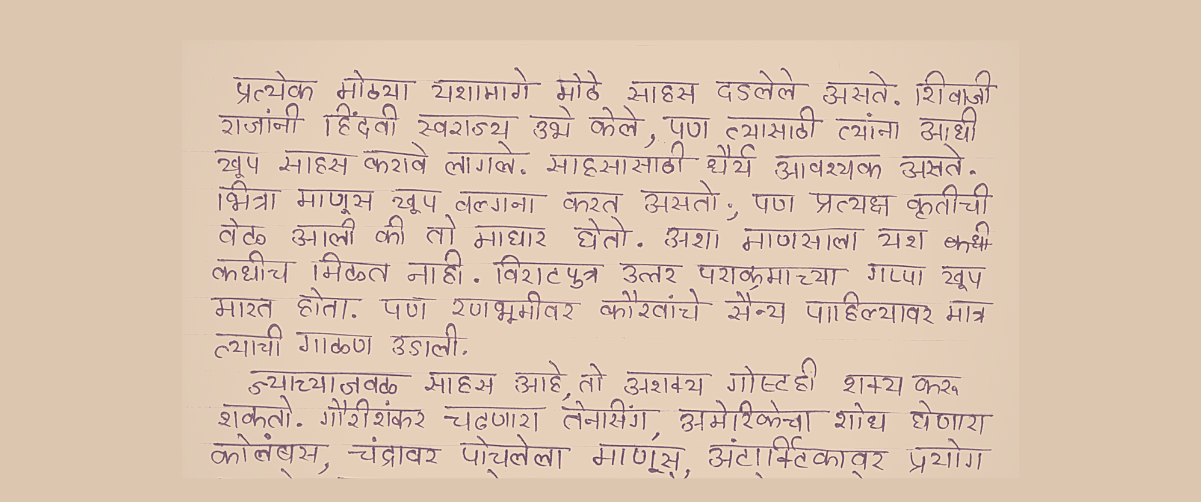 प्रत्येक मोठया यशामागे मोठे साहस दडलेले असते. शिवाजी
राजांनी हिंदवी स्वराज्य उभे केले, पण त्यासाठी त्यांना आधी
खूप साहस करावे लागले. साहसासाठी धैर्य आवश्यक असते.
भित्रा माणूस खूप वल्गना करत असतो; पण प्रत्यक्ष कृतीची
वेळ आली की तो माघार घेतो. अशा माणसाला यश कधी
कधीच मिळत नाही. विराटपुत्र उत्तर पराक्रमाच्या गप्पा खूप
मारत होता. पण रणभूमीवर कौरवांचे सैन्य पाहिल्यावर मात्र
त्याची गाळण उडाली.
ज्याच्याजवळ साहस आहे, तो अशक्य गोष्टही शक्य करू
शकतो. गौरीशंकर चढणारा तेनसिंग, अमेरिकेचा शोध घेणारा
कोलंबस, चंद्रावर पोचलेला माणूस, अंटार्क्टिकावर प्रयोग